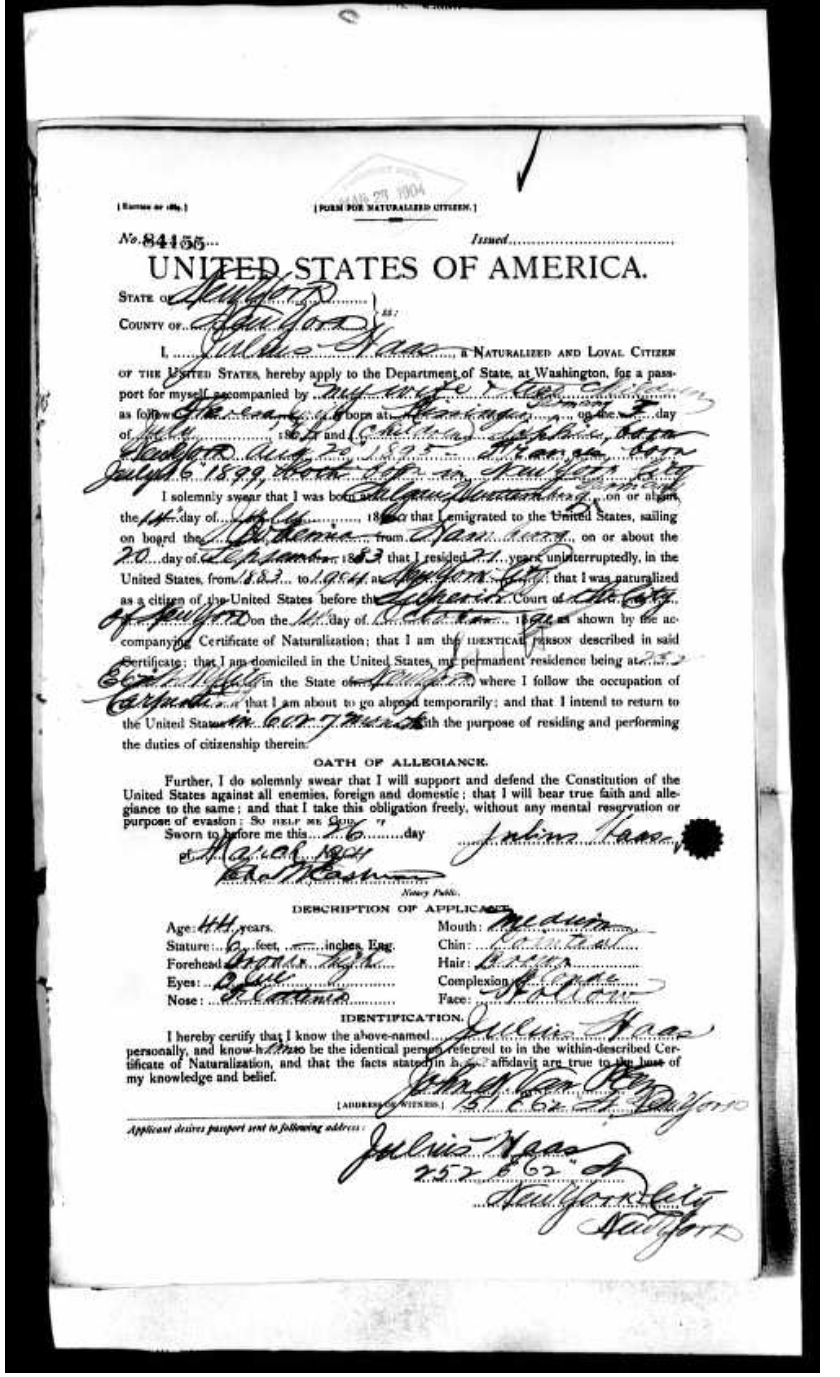 MAR 28 1904
[EDITION OF 1889.] [FORM FOR NATURALIZED CITIZEN.]
No. 84155 Issued
UNITED STATES OF AMERICA.
STATE OF New York
COUNTY OF New York ss:
I, Julius Haas, a NATURALIZED AND LOYAL CITIZEN
OF THE UNITED STATES, hereby apply to the Department of State, at Washington, for a pass-
port for myself, accompanied by my wife & two Children
as follows: born at Germany, on the day
of July, 18 and (Children) Sophie, born
New York Aug 20, 1895 born
July 16 1899, both born in New York City
I solemnly swear that I was born at Germany, on or about
the 14" day of July, 18; that I emigrated to the United States, sailing
on board the Bohemia from Hamburg, on or about the
20 day of September, 1883; that I resided 21 years, uninterruptedly, in the
United States, from 1883 to 1904 at New York City; that I was naturalized
as a citizen of the United States before the Superior Court of the City
of New York on the day of October, 18, as shown by the ac-
companying Certificate of Naturalization; that I am the IDENTICAL PERSON described in said
Certificate; that I am domiciled in the United States, my permanent residence being at 252
in the State of New York, where I follow the occupation of
Carpenter; that I am about to go abroad temporarily; and that I intend to return to
the United States in 6 or 7 months with the purpose of residing and performing
the duties of citizenship therein.
OATH OF ALLEGIANCE.
Further, I do solemnly swear that I will support and defend the Constitution of the
United States against all enemies, foreign and domestic; that I will bear true faith and alle-
giance to the same; and that I take this obligation freely, without any mental reservation or
purpose of evasion: SO HELP ME GOD.
Sworn to before me this 26 day
of March 1904 Julius Haas
Notary Public.
DESCRIPTION OF APPLICANT.
Age: 44 years. Mouth: Medium
Stature: 6 feet, — inches, Eng. Chin: Pointed
Forehead: Broad & high Hair: Brown
Eyes: Blue Complexion: Blonde
Nose: Face: Hollow
IDENTIFICATION.
I hereby certify that I know the above-named Julius Haas
personally, and know him to be the identical person referred to in the within-described Cer-
tificate of Naturalization, and that the facts stated in his affidavit are true to the best of
my knowledge and belief.
John
[ADDRESS OF WITNESS.] New York
Applicant desires passport sent to following address:
Julius Haas
252 E 62" St
New York City
New York